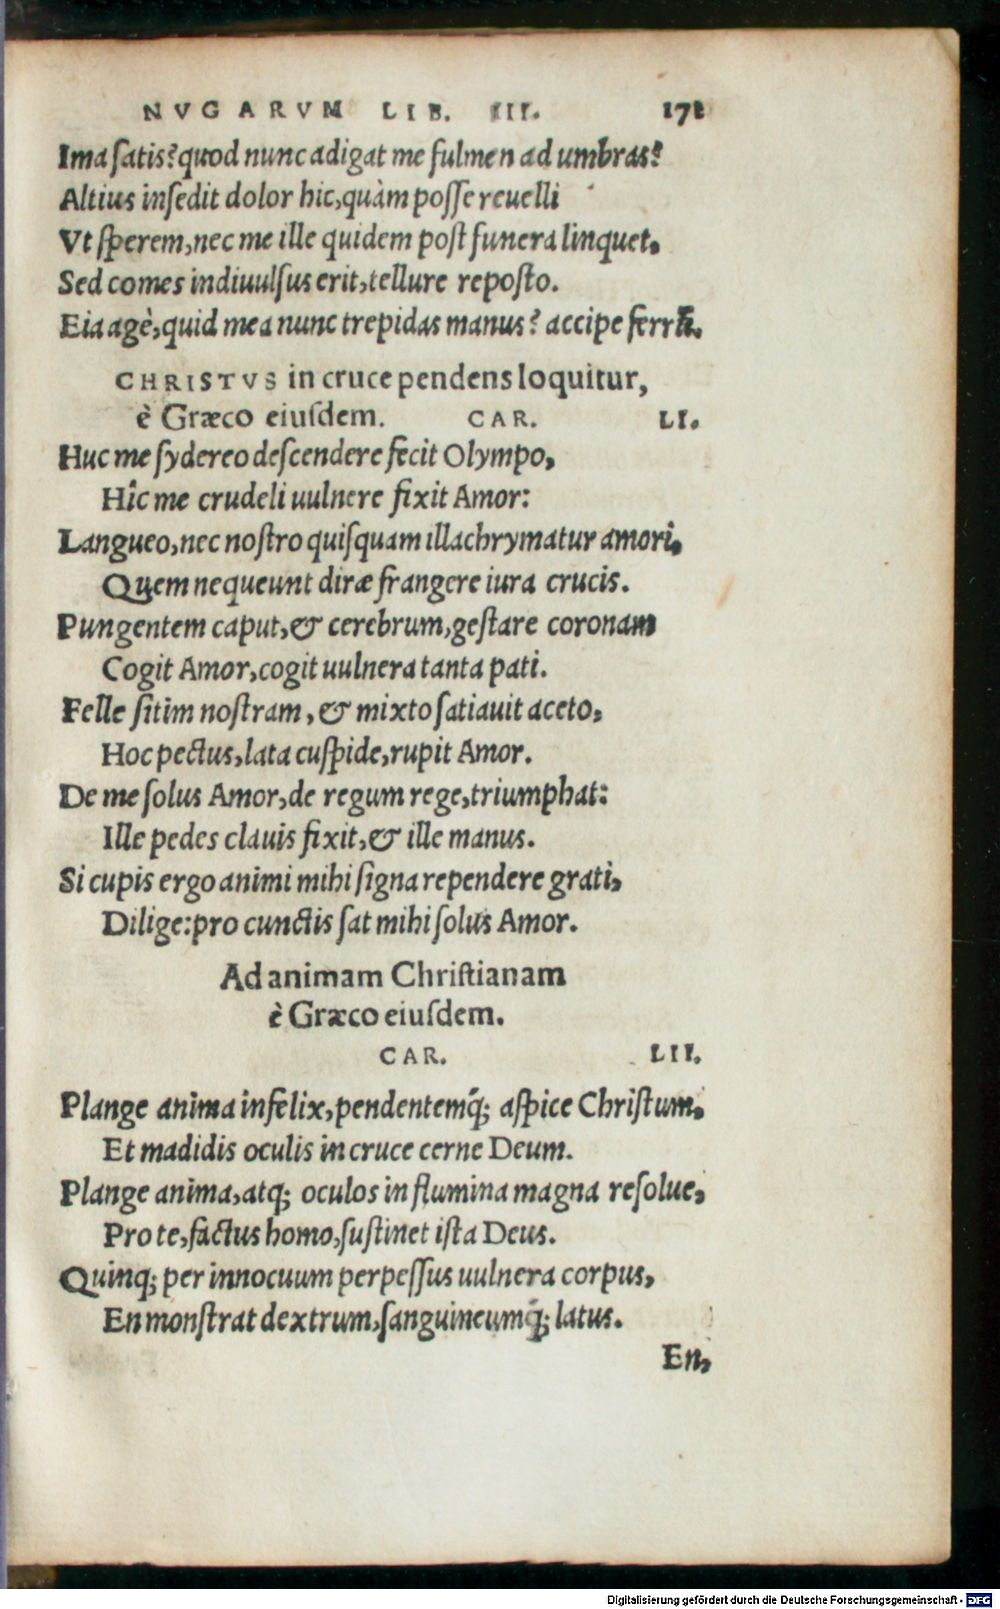 NVGARVM LIB. III. 171
Ima satis? quod nunc adigat me fulmen ad umbras?
Altius insedit dolor hic, quàm posse reuelli
Vt sperem, nec me ille quidem post funera linquet,
Sed comes indiuulsus erit, tellure reposto.
Eia agè, quid mea nunc trepidas manus? accipe ferrū.
CHRISTVS in cruce pendens loquitur,
è Græco eiusdem. CAR. LI.
Huc me sydereo descendere fecit Olympo,
Hîc me crudeli uulnere fixit Amor:
Langueo, nec nostro quisquam illachrymatur amori,
Quem nequeunt diræ frangere iura crucis.
Pungentem caput, & cerebrum, gestare coronam
Cogit Amor, cogit uulnera tanta pati.
Felle sitim nostram, & mixto satiauit aceto,
Hoc pectus, lata cuspide, rupit Amor.
De me solus Amor, de regum rege, triumphat:
Ille pedes clauis fixit, & ille manus.
Si cupis ergo animi mihi signa rependere grati,
Dilige: pro cunctis sat mihi solus Amor.
Ad animam Christianam
è Græco eiusdem.
CAR. LII.
Plange anima infelix, pendentemq́; aspice Christum,
Et madidis oculis in cruce cerne Deum.
Plange anima, atq; oculos in flumina magna resolue,
Pro te, factus homo, sustinet ista Deus.
Quinq; per innocuum perpessus uulnera corpus,
En monstrat dextrum, sanguineumq́; latus.
En,
Digitalisierung gefördert durch die Deutsche Forschungsgemeinschaft - DFG